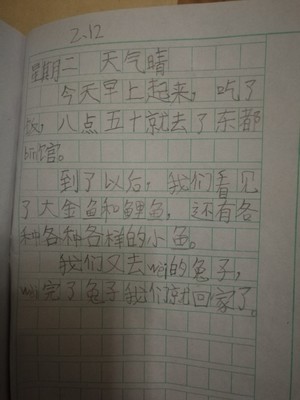 2.12
星期二 天气晴
今天早上起来，吃了
饭，八点五十就去了东都
bin馆。
到了以后，我们看见
了大金鱼和鲤鱼，还有各
种各种各样的小鱼。
我们又去wei的兔子，
wei完了兔子我们就回家了。